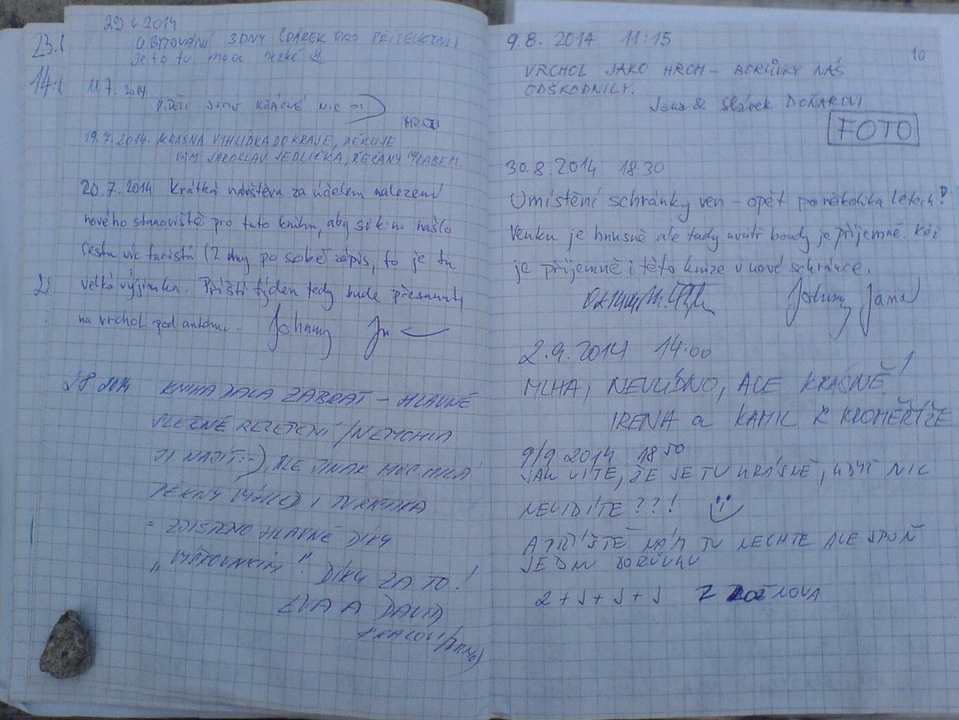 23.6
14.7
29.6 2014
UBYTOVÁNÍ 3 DNY (DÁREK PRO PŘÍTELKYNI
je to tu moc hezké !!
11.7. 2014
JSME KRÁSNÉ NIC
19.7.2014. KRÁSNÁ VYHLÍDKA DO KRAJE, DĚKUJE
VÁM JAROSLAV JEDLIČKA, ŘEČANY N/LABEM.
20.7.2014 Krátká návštěva za účelem nalezení
nového stanoviště pro tuto knihu, aby si k ní našlo
cestu víc turistů (2 dny po sobě zápis, to je tu
velká výjimka. Příští týden tedy bude přesunuty
na vrchol pod anténu. Johnny
2.8. 2014 KNIHA DALA ZABRAT – HLAVNĚ
VLEŽNÉ /NEMOHLA
JI NAJÍT :-), ALE JINAK MOC MILÁ
PĚKNÝ VÝHLED I TURISTIKA
= ZJIŠTĚNO HLAVNĚ DÍKY
"! DÍKY ZA TO!
EVA A DAVID
KRÁLOVI
10
9.8. 2014 11:15
VRCHOL JAKO HROM – BORŮVKY NÁS
ODŠKODNILY.
Jana & Slávek DOŇAROVI
FOTO
30.8.2014 18.30
Umístění schránky ven – opět po několika letech!
Venku je hnusně ale tady uvnitř boudy je příjemně. Kéž
je příjemně i této knize v nové schránce.
Johnny Jana
2.9.2014 14.00
MLHA, NEVLÍDNO, ALE KRÁSNĚ!
IRENA a KAMIL Z KROMĚŘÍŽE
9/9 2014 18 50
JAK VÍTE, ŽE JE TU KRÁSNĚ, KDYŽ NIC
NEVIDÍTE ??!
A PŘÍŠTĚ NÁM TU NECHTE ALESPOŇ
JEDNU BORŮVKU
2+1+1+1 Z